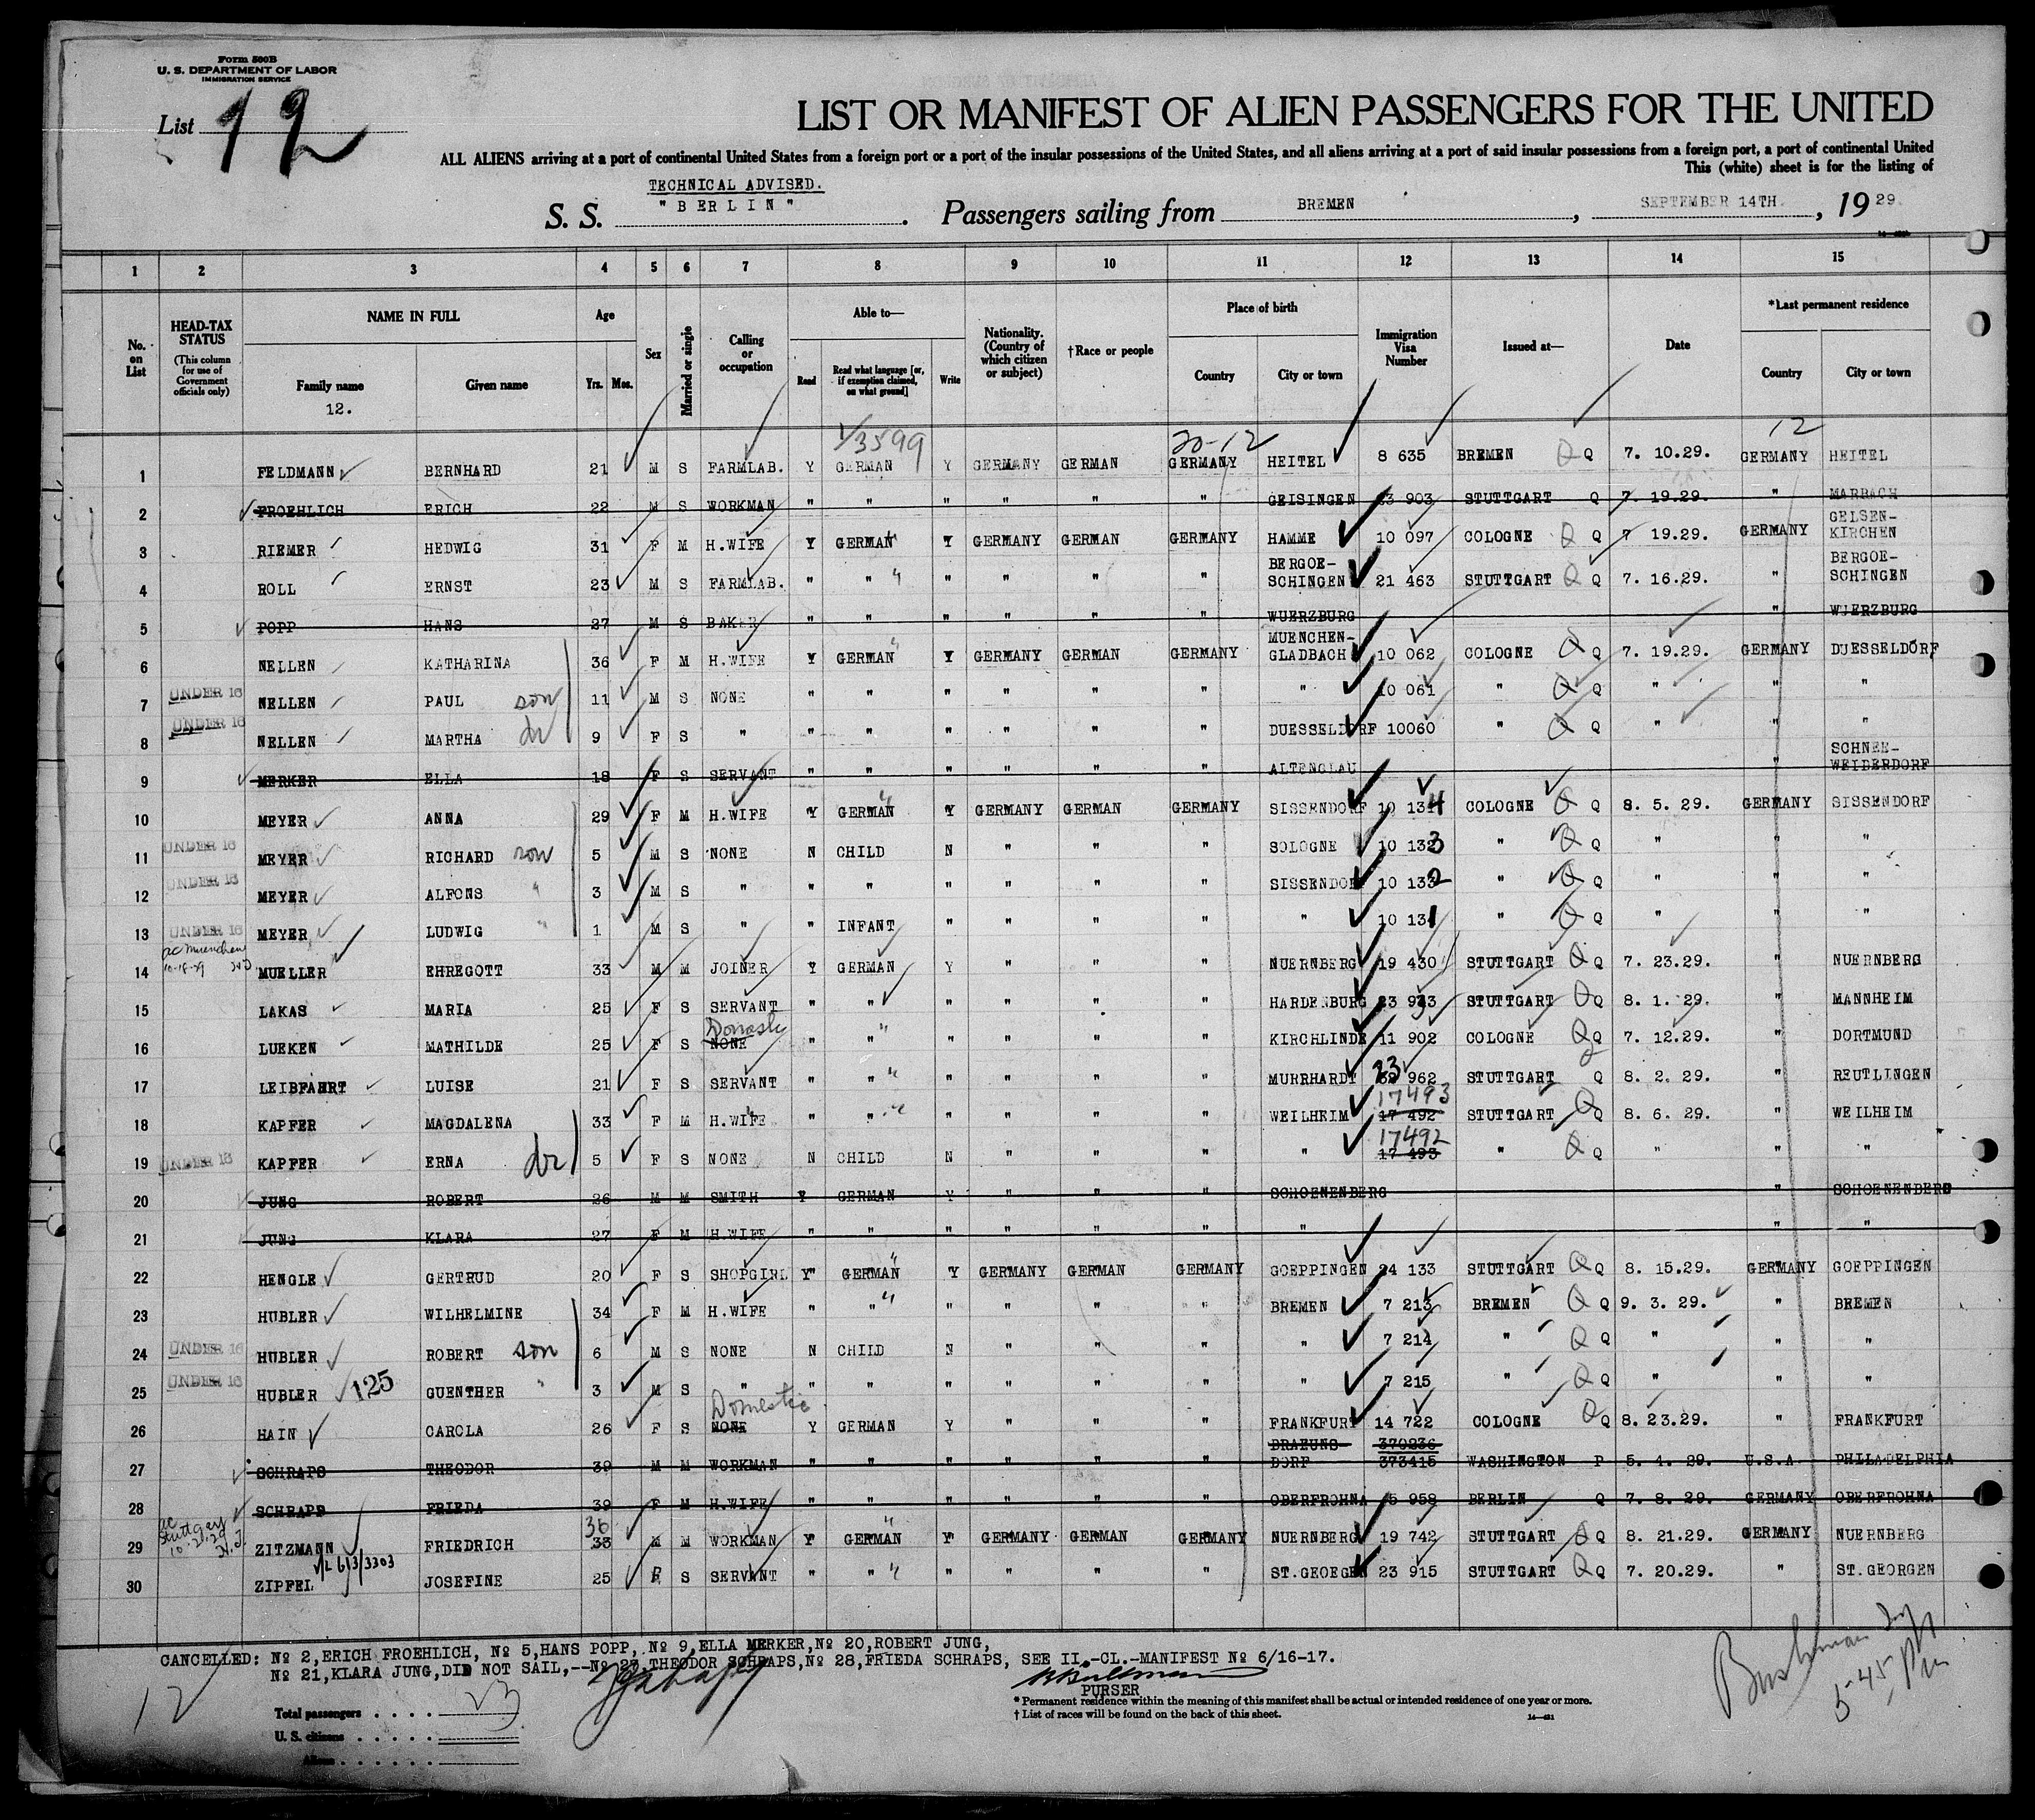 Form 500B
U. S. DEPARTMENT OF LABOR
IMMIGRATION SERVICE
List 12
LIST OR MANIFEST OF ALIEN PASSENGERS FOR THE UNITED
ALL ALIENS arriving at a port of continental United States from a foreign port or a port of the insular possessions of the United States, and all aliens arriving at a port of said insular possessions from a foreign port, a port of continental United
This (white) sheet is for the listing of
TECHNICAL ADVISED.
S. S. "BERLIN". Passengers sailing from BREMEN, SEPTEMBER 14TH, 19 29.
1 2 3 4 5 6 7 8 9 10 11 12 13 14 15
No. on List
HEAD-TAX STATUS
(This column for use of Government officials only)
NAME IN FULL
Family name
12.
Given name
Age
Yrs. Mos.
Sex
Married or single
Calling or occupation
Able to—
Read
Read what language [or, if exemption claimed, on what ground]
Write
Nationality. (Country of which citizen or subject)
†Race or people
Place of birth
Country
City or town
Immigration Visa Number
Issued at—
Date
*Last permanent residence
Country
City or town
1/3599 20-12 12
1 FELDMANN BERNHARD 21 M S FARMLAB. Y GERMAN Y GERMANY GERMAN GERMANY HEITEL 8 635 BREMEN Q Q 7. 10.29. GERMANY HEITEL
2 FROEHLICH ERICH 22 M S WORKMAN " " " " " " GEISINGEN 23 903 STUTTGART Q 7. 19.29. " MARBACH
3 RIEMER HEDWIG 31 F M H.WIFE Y GERMAN Y GERMANY GERMAN GERMANY HAMME 10 097 COLOGNE Q Q 7 19.29. GERMANY GELSEN-KIRCHEN
4 ROLL ERNST 23 M S FARMLAB. " " " " " " BERGOE-SCHINGEN 21 463 STUTTGART Q Q 7. 16.29. " BERGOE-SCHINGEN
5 POPP HANS 27 M S BAKER " " " " " " WUERZBURG " WUERZBURG
6 NELLEN KATHARINA 36 F M H.WIFE Y GERMAN Y GERMANY GERMAN GERMANY MUENCHEN-GLADBACH 10 062 COLOGNE Q Q 7. 19.29. GERMANY DUESSELDORF
7 UNDER 16 NELLEN PAUL son 11 M S NONE " " " " " " " 10 061 " Q Q " " "
8 UNDER 16 NELLEN MARTHA dr 9 F S " " " " " " " DUESSELDORF 10060 " Q Q " " "
9 MERKER ELLA 18 F S SERVANT " " " " " " ALTENGLAU " SCHNEE-WEIDERDORF
10 MEYER ANNA 29 F M H.WIFE Y GERMAN Y GERMANY GERMAN GERMANY SISSENDORF 10 134 COLOGNE Q Q 8. 5. 29. GERMANY SISSENDORF
11 UNDER 16 MEYER RICHARD son 5 M S NONE N CHILD N " " " SOLOGNE 10 133 " Q Q " " "
12 UNDER 16 MEYER ALFONS " 3 M S " " " " " " " SISSENDORF 10 132 " Q Q " " "
13 UNDER 16 MEYER LUDWIG " 1 M S " " INFANT " " " " " 10 131 " Q Q " " "
ac Muenchen 10-18-29
14 MUELLER EHREGOTT 33 M M JOINER Y GERMAN Y " " " NUERNBERG 19 430 STUTTGART Q Q 7. 23.29. " NUERNBERG
15 LAKAS MARIA 25 F S SERVANT " " " " " " HARDENBURG 23 933 STUTTGART Q Q 8. 1. 29. " MANNHEIM
16 LUEKEN MATHILDE 25 F S NONE Domestic " " " " " " KIRCHLINDE 11 902 COLOGNE Q Q 7. 12.29. " DORTMUND
17 LEIBFAHRT LUISE 21 F S SERVANT " " " " " " MURRHARDT 23 962 STUTTGART Q 8. 2. 29. " REUTLINGEN
18 KAPFER MAGDALENA 33 F M H.WIFE " " " " " " WEILHEIM 17493 17 492 STUTTGART Q Q 8. 6. 29. " WEILHEIM
19 UNDER 16 KAPFER ERNA dr 5 F S NONE N CHILD N " " " " 17492 17 493 " Q Q " " "
20 JUNG ROBERT 26 M M SMITH Y GERMAN Y " " " SCHOENENBERG " SCHOENENBERG
21 JUNG KLARA 27 F M H.WIFE " " " " " " " " "
22 HENGLE GERTRUD 20 F S SHOPGIRL Y GERMAN Y GERMANY GERMAN GERMANY GOEPPINGEN 24 133 STUTTGART Q Q 8. 15.29. GERMANY GOEPPINGEN
23 HUBLER WILHELMINE 34 F M H.WIFE " " " " " " BREMEN 7 213 BREMEN Q Q 9. 3. 29. " BREMEN
24 UNDER 16 HUBLER ROBERT son 6 M S NONE N CHILD N " " " " 7 214 " Q Q " " "
25 UNDER 16 HUBLER 125 GUENTHER " 3 M S " " " " " " " " 7 215 " Q Q " " "
26 HAIN CAROLA 26 F S NONE Domestic Y GERMAN Y " " " FRANKFURT 14 722 COLOGNE Q Q 8. 23.29. " FRANKFURT
27 SCHRAPS THEODOR 39 M M WORKMAN " " " " " " BRAEUNS-DORF 370236 373415 WASHINGTON P 5. 4. 29. U.S.A. PHILLADELPHIA
28 SCHRAPS FRIEDA 39 F M H.WIFE " " " " " " OBERFROHNA 15 958 BERLIN Q 7. 8. 29. GERMANY OBERFROHNA
ac Stuttgart 10-21-29
29 ZITZMANN FRIEDRICH 36 33 M M WORKMAN Y GERMAN Y GERMANY GERMAN GERMANY NUERNBERG 19 742 STUTTGART Q Q 8. 21.29. GERMANY NUERNBERG
V/L 613/3303
30 ZIPFEL JOSEFINE 25 F S SERVANT " " " " " " ST.GEOEGEN 23 915 STUTTGART Q Q 7. 20.29. " ST.GEORGEN
CANCELLED: No 2,ERICH FROEHLICH, No 5,HANS POPP, No 9,ELLA MERKER,No 20,ROBERT JUNG,
No 21,KLARA JUNG,DID NOT SAIL,--No 27,THEODOR SCHRAPS,No 28,FRIEDA SCHRAPS, SEE II.-CL.-MANIFEST No 6/16-17.
PURSER
12
Total passengers . . . . 23
U. S. citizens . . . . .
Aliens . . . . . .
* Permanent residence within the meaning of this manifest shall be actual or intended residence of one year or more.
† List of races will be found on the back of this sheet.
14—421
5-45 PM